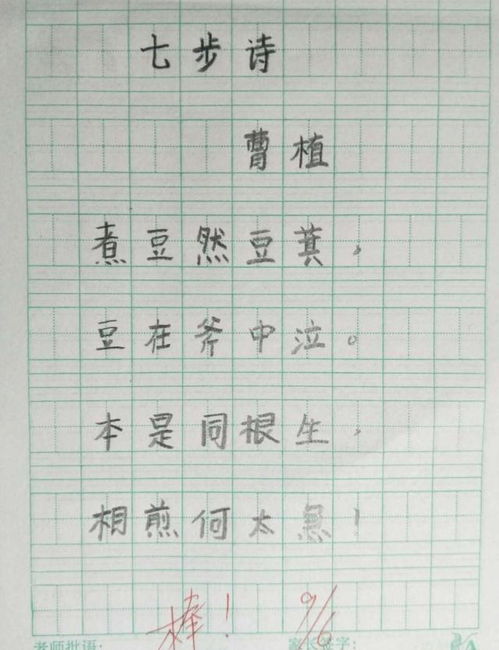 七步诗
曹植
煮豆然豆萁，
豆在斧中泣。
本是同根生，
相煎何太急！
棒！ 9/6
老师批语： 家长签字：